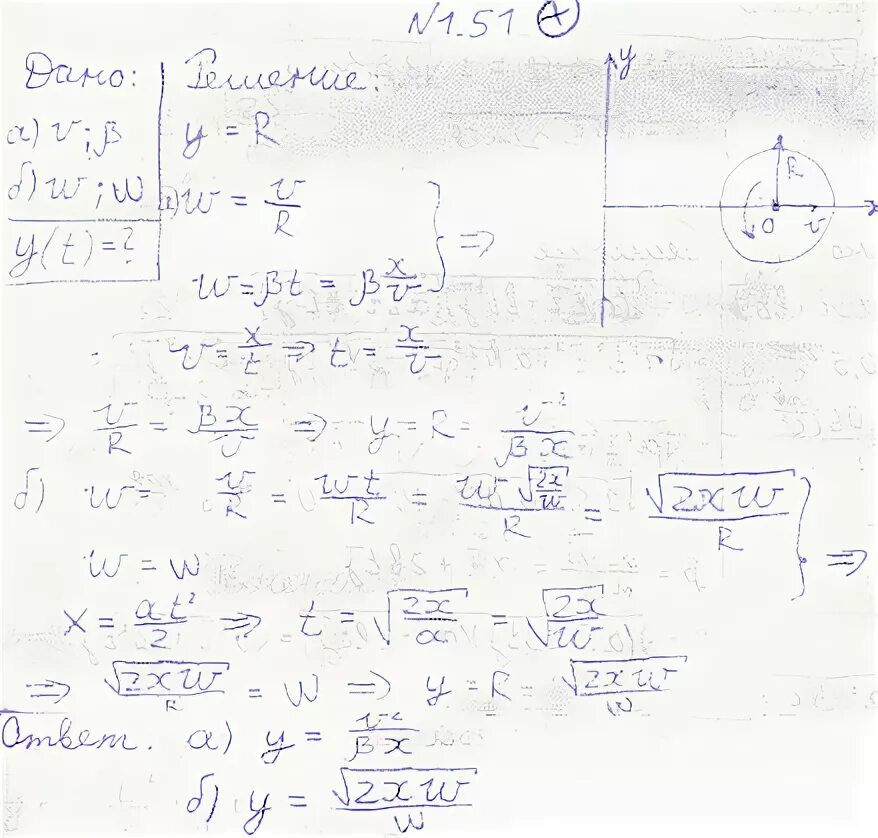 N 1.51 +
Дано: Решение:
а) v; β
y = R
б) w; ω
y(t) = ?
а) ω = v/R
ω = βt = β x/v } ⇒
v = x/t ⇒ t = x/v
⇒ v/R = βx/v ⇒ y = R = v²/(βx)
б) ω = v/R = wt/R = w√(2x/w)/R = √(2xw)/R
ω = ω } ⇒
x = at²/2 ⇒ t = √(2x/a) = √(2x/w)
⇒ √(2xw)/R = ω ⇒ y = R = √(2xw)/ω
Ответ. а) y = v²/(βx)
б) y = √(2xw)/ω
y
R
O
v
x